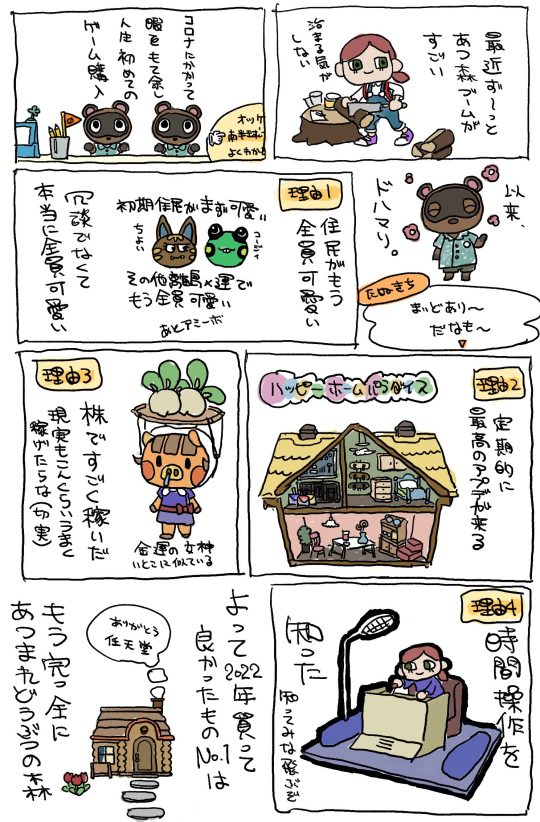 最近ず〜っと
あつ森ブームが
すごい
治まる気が
しない
コロナにかかって
暇をもて余し
人生初めての
ゲーム購入
以来、
ドハマり。
たぬきち
まいどあり〜
だなも〜
理由1
住民がもう
全員可愛い
初期住民がまず可愛い
その他離島×運で
もう全員可愛い
あとアミーボ
冗談でなくて
本当に全員可愛い
理由2
定期的に
最高のアプデが来る
ハッピーホームパラダイス
理由3
株ですごく稼いだ
現実もこんくらいうまく
稼げたらな(切実)
金運の女神
いとこに似ている
理由4
時間操作を
知った
よって
2022年買って
良かったもの
No.1は
ありがとう
任天堂
もう完っ全に
あつまれどうぶつの森